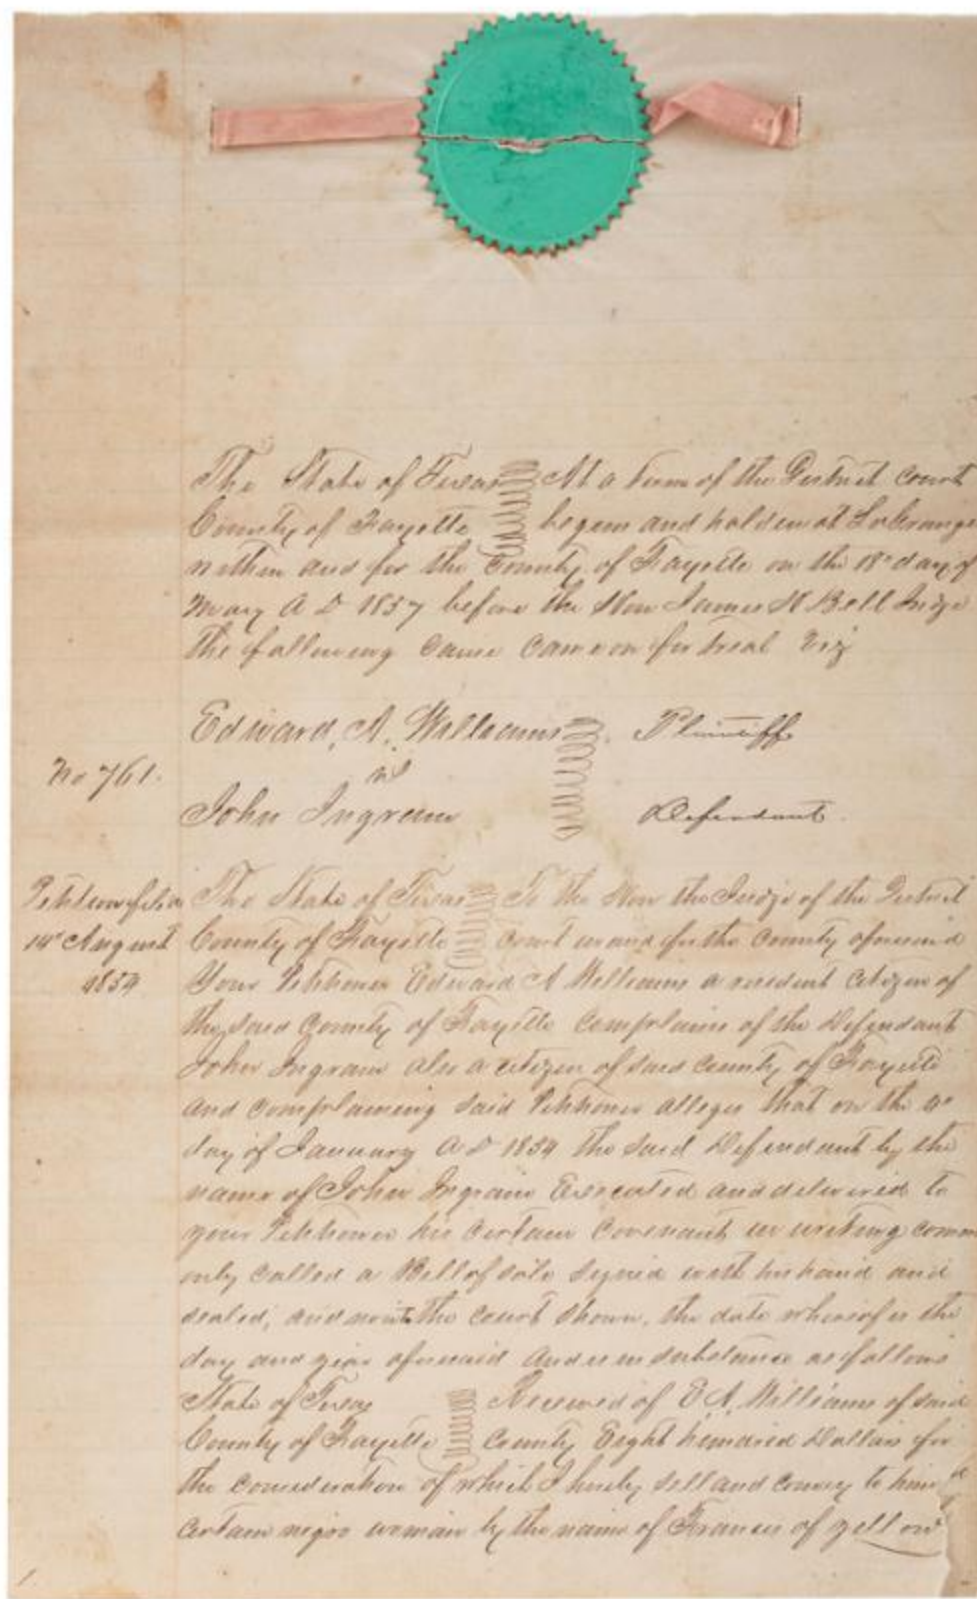 The State of Texas At a Term of the District Court
County of Fayette begun and holden at LaGrange
within and for the County of Fayette on the 18th day of
May A D 1857 before the Hon James H Bell Judge
the following cause came on for trial viz
Edward A. Williams Plaintiff
No 761. vs
John Ingram Defendant
Petition filed The State of Texas To the Hon the Judge of the District
14th August County of Fayette Court in and for the County aforesaid
1854 Your Petitioner Edward A Williams a resident citizen of
the said County of Fayette complains of the Defendant
John Ingram also a citizen of said County of Fayette
and complaining said Petitioner alleges that on the
day of January A D 1854 the said Defendant by the
name of John Ingram Executed and delivered to
your Petitioner his certain covenant in writing comm
only called a Bill of Sale signed with his hand and
sealed, and now to the court shown, the date whereof is the
day and year aforesaid and is in substance as follows
State of Texas Received of E A. Williams of said
County of Fayette County Eight hundred Dollars for
the consideration of which I hereby sell and convey to him a
certain negro woman by the name of Frances of yellow